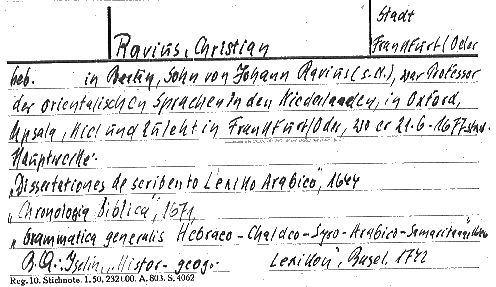 Stadt
Ravius, Christian Frankfurt/Oder
geb. in Berlin, Sohn von Johann Ravius (s.d.), war Professor
der orientalischen Sprachen in den Niederlanden, in Oxford,
Upsala, Kiel und zuletzt in Frankfurt/Oder, wo er 21.6.1677 starb.
Hauptwerke:
"Dissertationes de scribento Lexiko Arabico", 1644
"Chronologia Biblica", 1671
"Grammatica generalis Hebraeo-Chaldeo-Syro-Arabico-Samaritana"
B.Q.: Iselin, "Histor.-geog. Lexikon", Basel, 1742
Reg. 10. Stichnote. 1. 50, 232000. A. 803. S. 4062